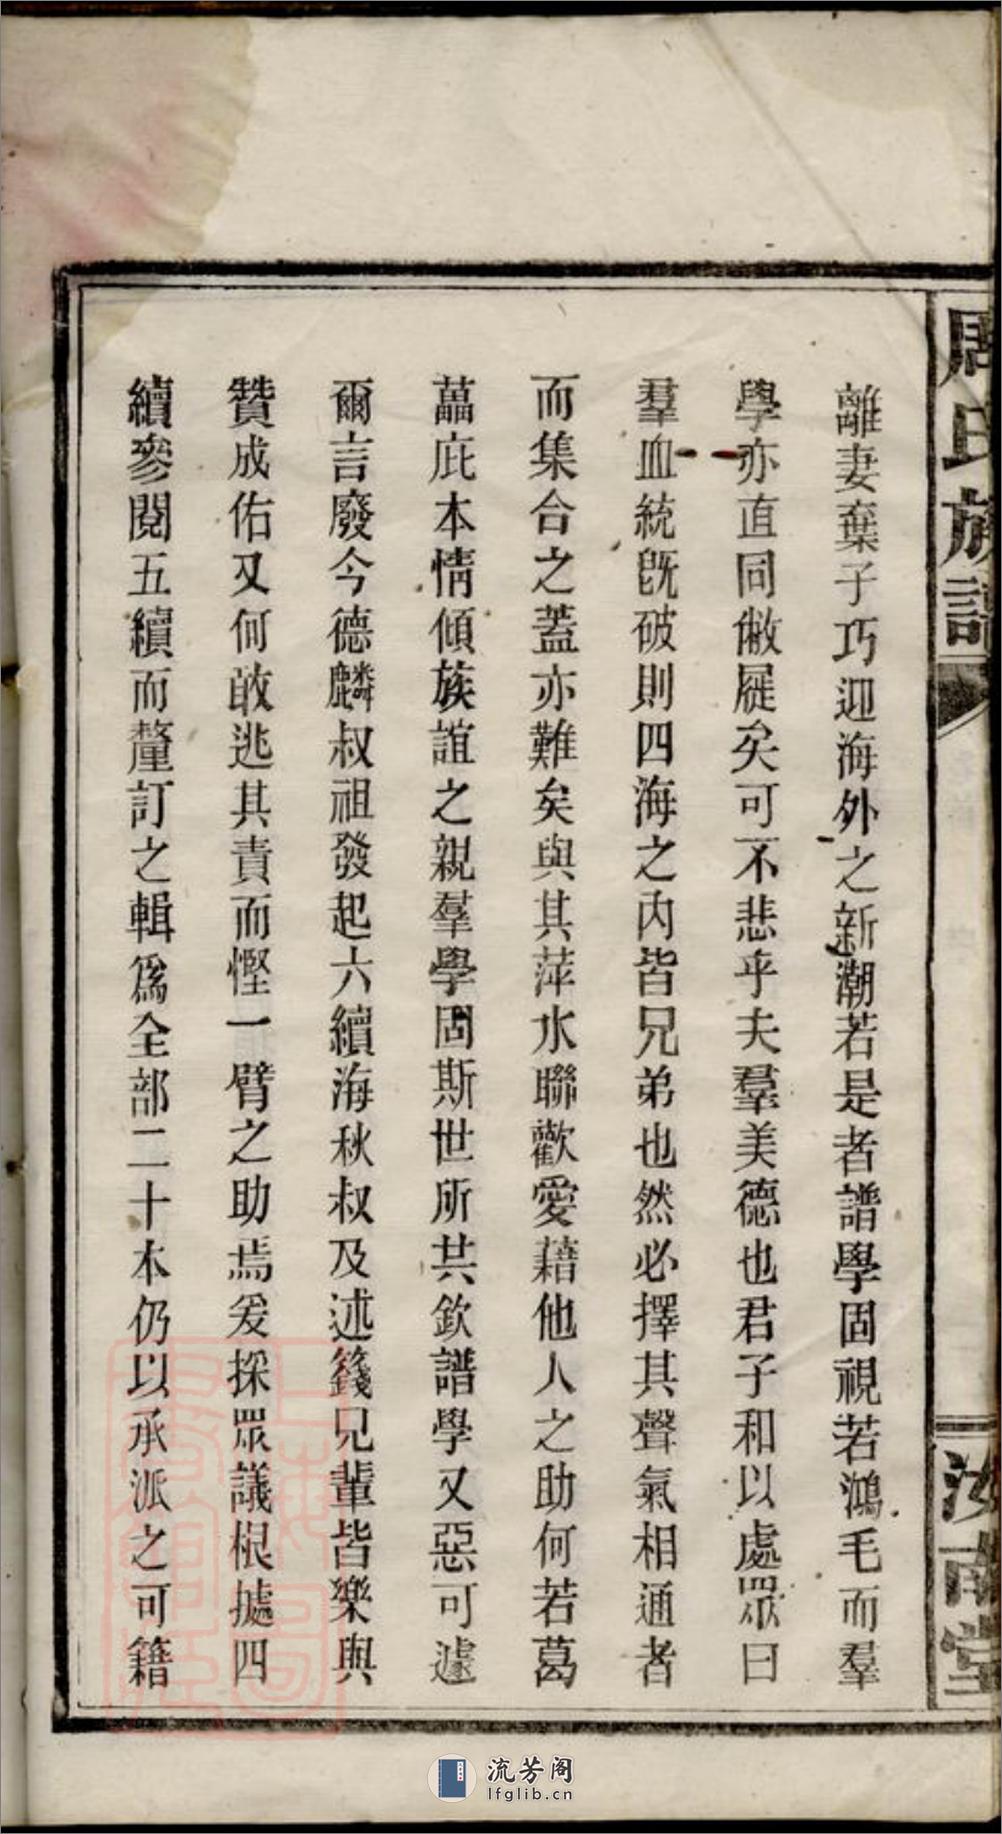 周氏族譜
汝南堂
離妻棄子巧迎海外之新潮若是者譜學固視若鴻毛而羣
學亦直同敝屣矣可不悲乎夫羣美德也君子和以處眾曰
羣血統旣破則四海之內皆兄弟也然必擇其聲氣相通者
而集合之蓋亦難矣與其萍水聯歡愛藉他人之助何若葛
藟庇本情傾族誼之親羣學固斯世所共欽譜學又惡可遽
爾言廢今德麟叔祖發起六續海秋叔及述籛兄輩皆樂與
贊成佑又何敢逃其責而慳一臂之助焉爰採眾議根據四
續參閱五續而釐訂之輯爲全部二十本仍以承派之可籍
流芳阁
lfglib.cn